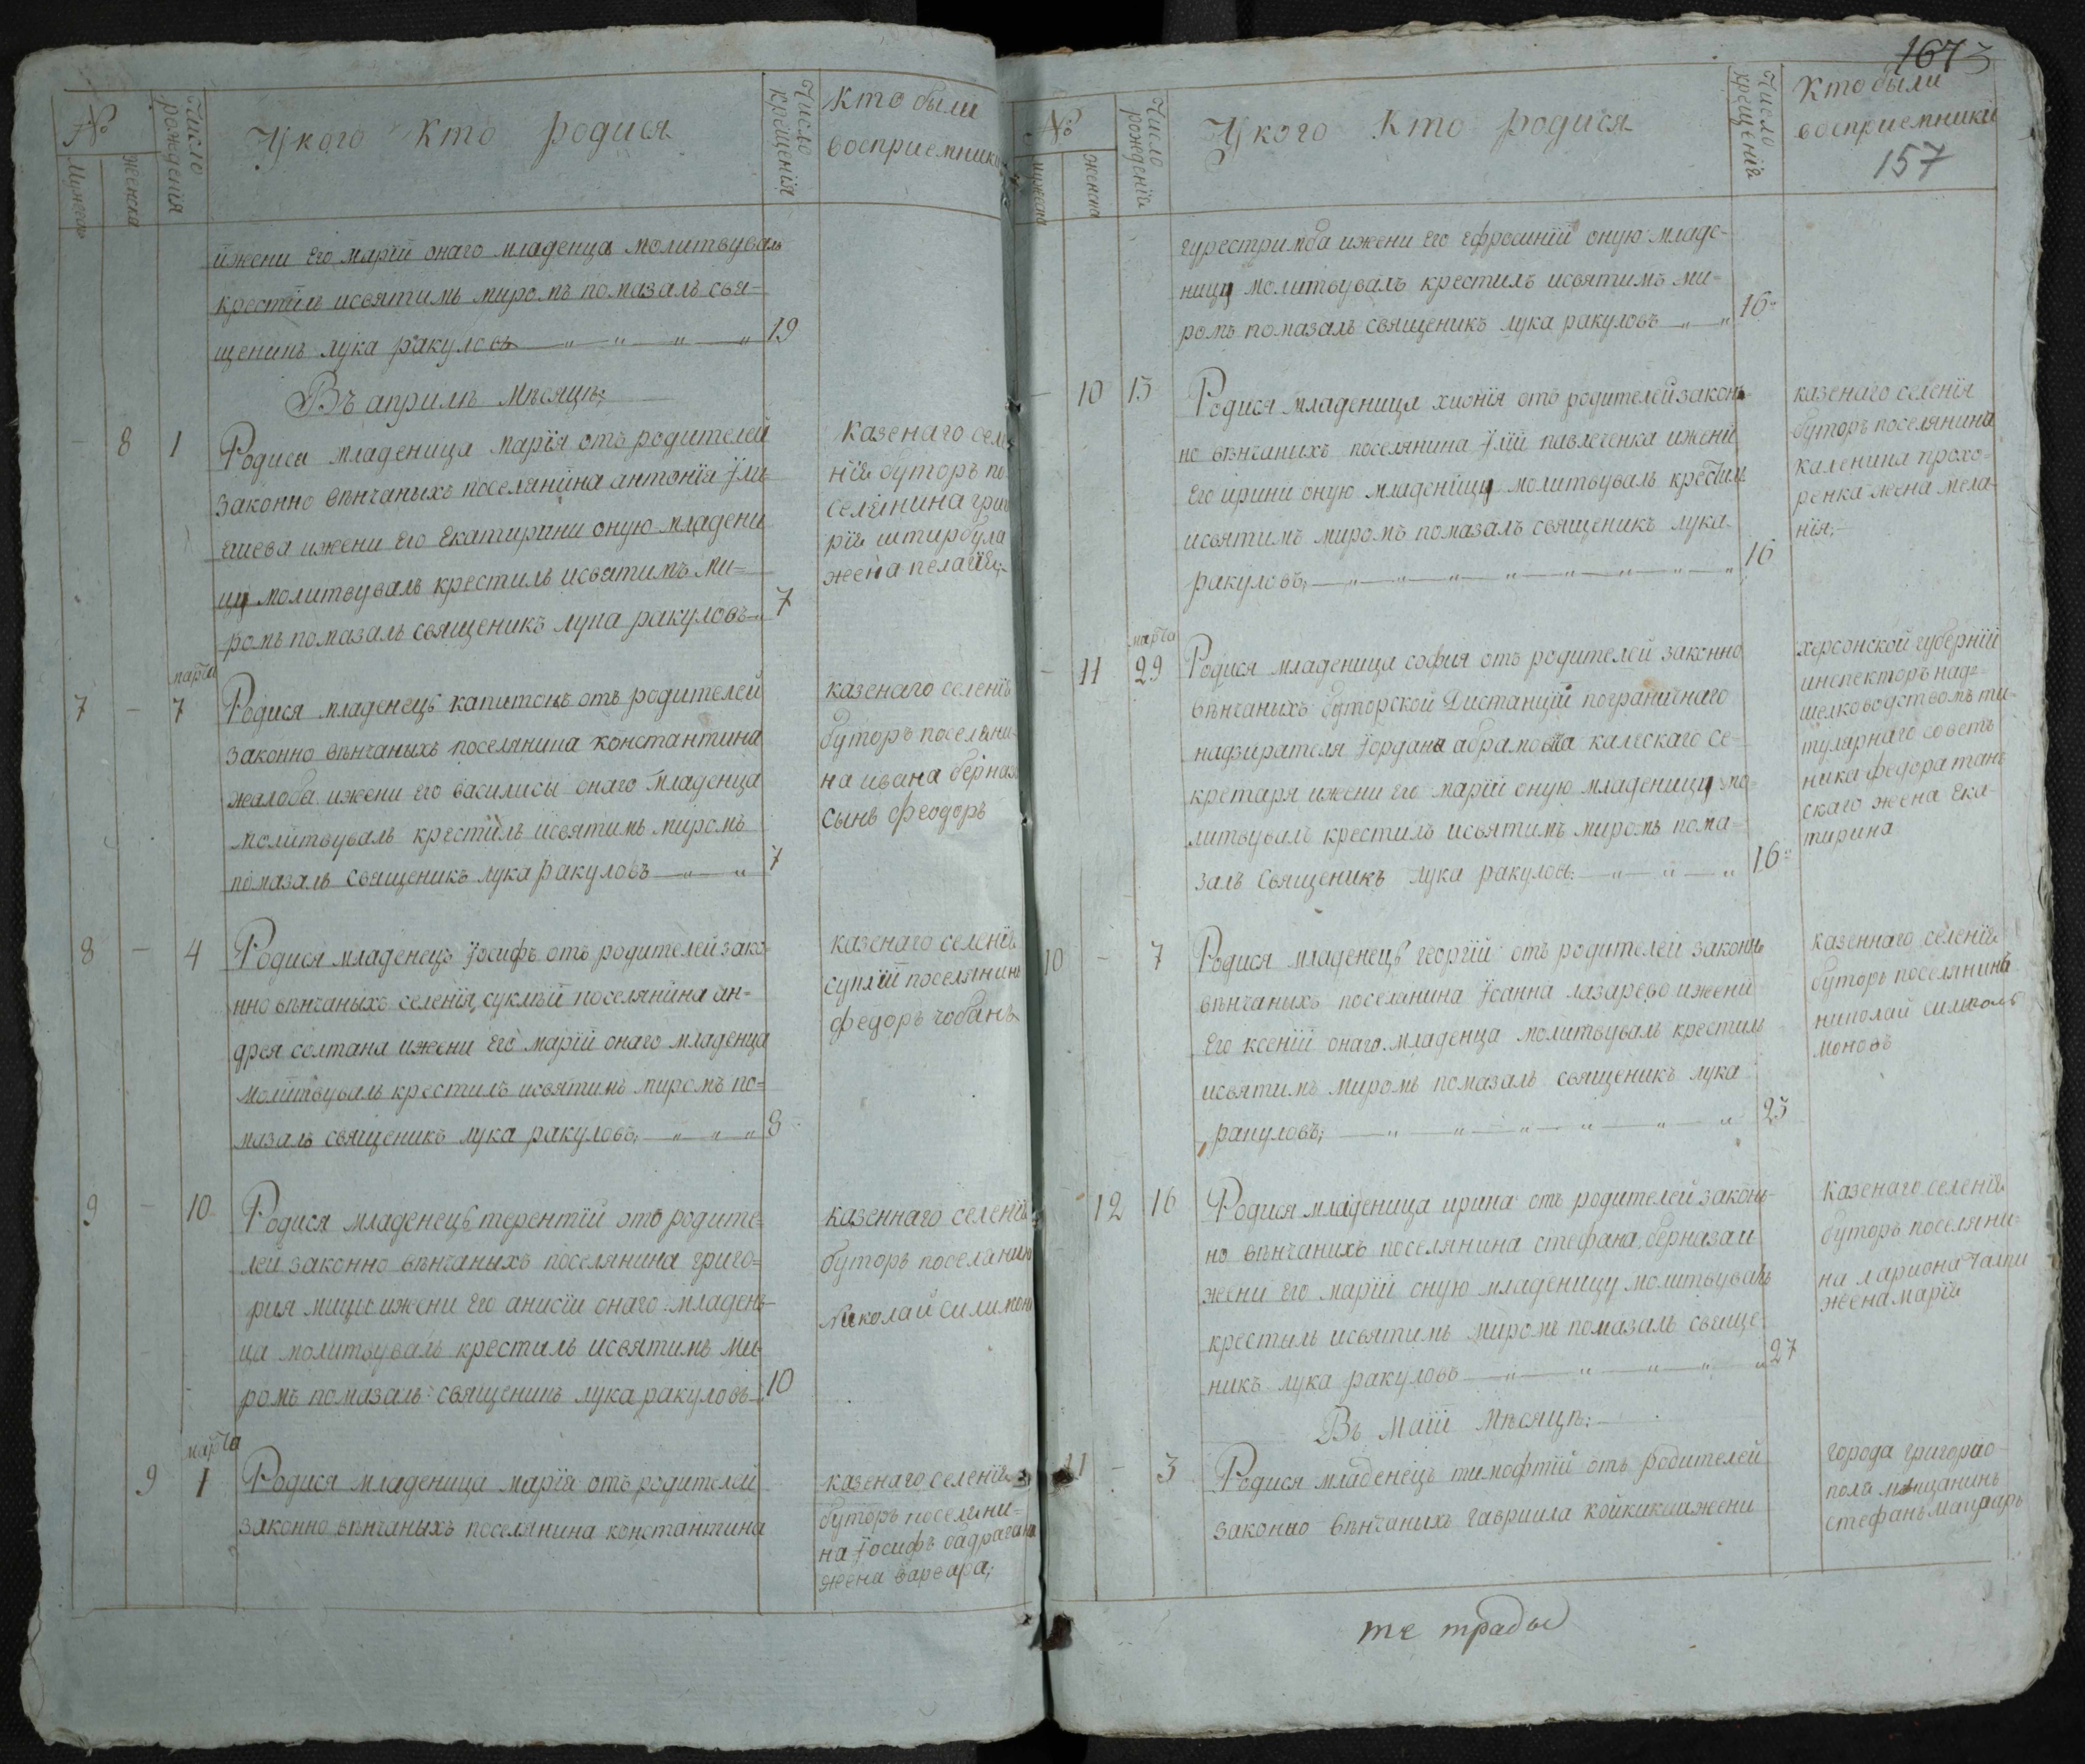 №
Мужеска
Женска
Число рожденїя
У кого кто родися
Число крещенїя
кто были
восприемники
ижени его марїи онаго младенца молитвувалъ
крестилъ исвятимъ миромъ помазалъ свя=
щеникъ лука ракуловъ 19
Въ априлѣ мѣсяцѣ:
8 1 Родися младеница марїя отъ родителей
законно вѣнчаныхъ поселянина антонїя
ижени его екатирини оную младени
цу молитвувалъ крестилъ исвятимъ ми=
ромъ помазалъ священикъ лука ракуловъ 7
казенаго селе
нїя буторъ по
селянина григо
рїя штирбула
жена пелагїя;
марта
7 – 7 Родися младенецъ капитонъ отъ родителей
законно вѣнчаныхъ поселянина константина
жалоба ижени его василиси онаго младенца
молитвувалъ крестилъ исвятимъ миромъ
помазалъ священикъ лука ракуловъ 7
казенаго селенїя
буторъ поселяни
на ивана берназ
сынъ феодоръ
8 – 4 Родися младенецъ Іосифъ отъ родителей зако
нно вѣнчаныхъ селенїя суклѣй поселянина ан=
дрея солтана ижени его марїи онаго младенца
молитвувалъ крестилъ исвятимъ миромъ по=
мазалъ священикъ лука ракуловъ; 8
казенаго селенїя
суклѣй поселянинъ
федоръ чобанъ
9 – 10 Родися младенецъ терентїй отъ родите=
лей законно вѣнчаныхъ поселянина григо=
рия мицис ижени его анисїи онаго младен
ца молитвувалъ крестилъ исвятимъ ми
ромъ помазалъ священикъ лука ракуловъ 10
казеннаго селенїя
буторъ поселянинъ
николай силимон
марта
9 1 Родися младеница марїя отъ родителей
законно вѣнчаныхъ поселянина константина
казенаго селенїя
буторъ поселяни=
на Іосифъ бадрагана
жена варвара;
1673
№
мужеска
женска
Число рожденїй
У кого Кто родися
Число крещенїй
Кто были
восприемники
157
гурестримба ижени его ефросинїи оную младе-
ницу молитвувалъ крестилъ исвятимъ ми-
ромъ помазалъ священикъ лука ракуловъ 16
– 10 13 Родися младеница хионїя отъ родителей закон
но вѣнчанихъ поселянина Ілїи павлеченка ижени
его ирини оную младеницу молитвувалъ крестилъ
исвятимъ миромъ помазалъ священикъ лука
ракуловъ; 16
казенаго селенїя
буторъ поселянина
каленика прохо-
ренка жена мела-
нїя;
марта
– 11 29 Родися младеница софия отъ родителей законно
вѣнчаныхъ буторской Дистанцїи пограничнаго
надзирателя Іордана абрамова калескаго се-
кретаря ижени его марїи оную младеницу мо-
литвувалъ крестилъ исвятимъ миромъ пома-
залъ священикъ лука ракуловъ 16
херсонской губернїи
инспекторъ надъ
шелководствомъ ти-
тулярнаго советъ
ника федора тан
скаго жена ека-
тирина
10 – 7 Родися младенецъ георгїй отъ родителей законно
вѣнчанихъ поселянина Іоанна лазарево ижени
его ксенїи онаго младенца молитвувалъ крестилъ
исвятимъ миромъ помазалъ священикъ лука
ракуловъ; 23
казеннаго селенїя
буторъ поселянинъ
николай
моновъ
12 16 Родися младеница ирина отъ родителей закон-
но вѣнчанихъ поселянина стефана берназа и
жени его марїи оную младеницу молитвувалъ
крестилъ исвятимъ миромъ помазалъ свяще
никъ лука ракуловъ 27
казенаго селенїя
буторъ поселяни=
на лариона
жена марїя
Въ маїи мѣсяцѣ:
11 – 3 Родися младенецъ тимофтїй отъ родителей
законно вѣнчанихъ гавриила койкикши жени
города григорио-
поля мѣщанинъ
стефанъ
те трады